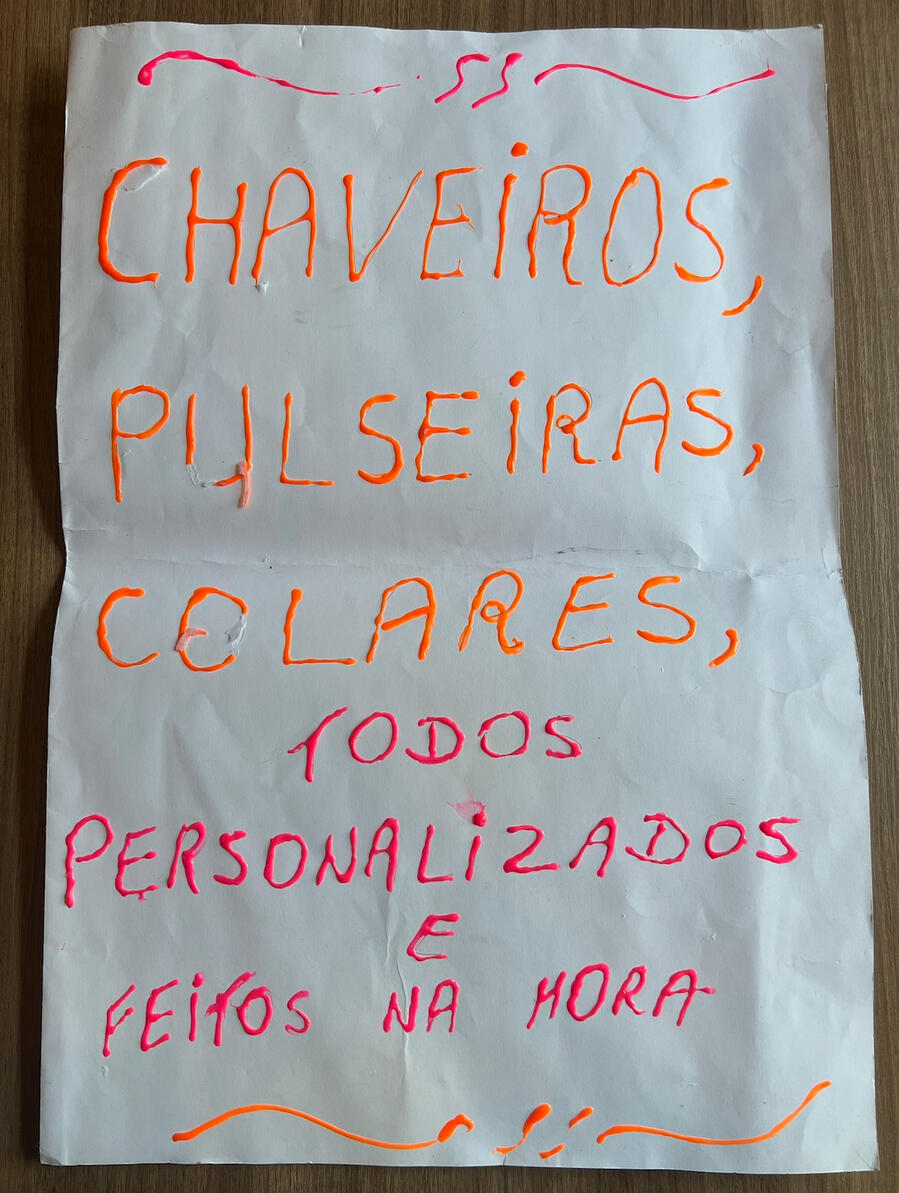 CHAVEiROS,
PULSEiRAS,
COLARES,
TODOS
PERSONALiZADOS
E
FEiTOS NA HORA